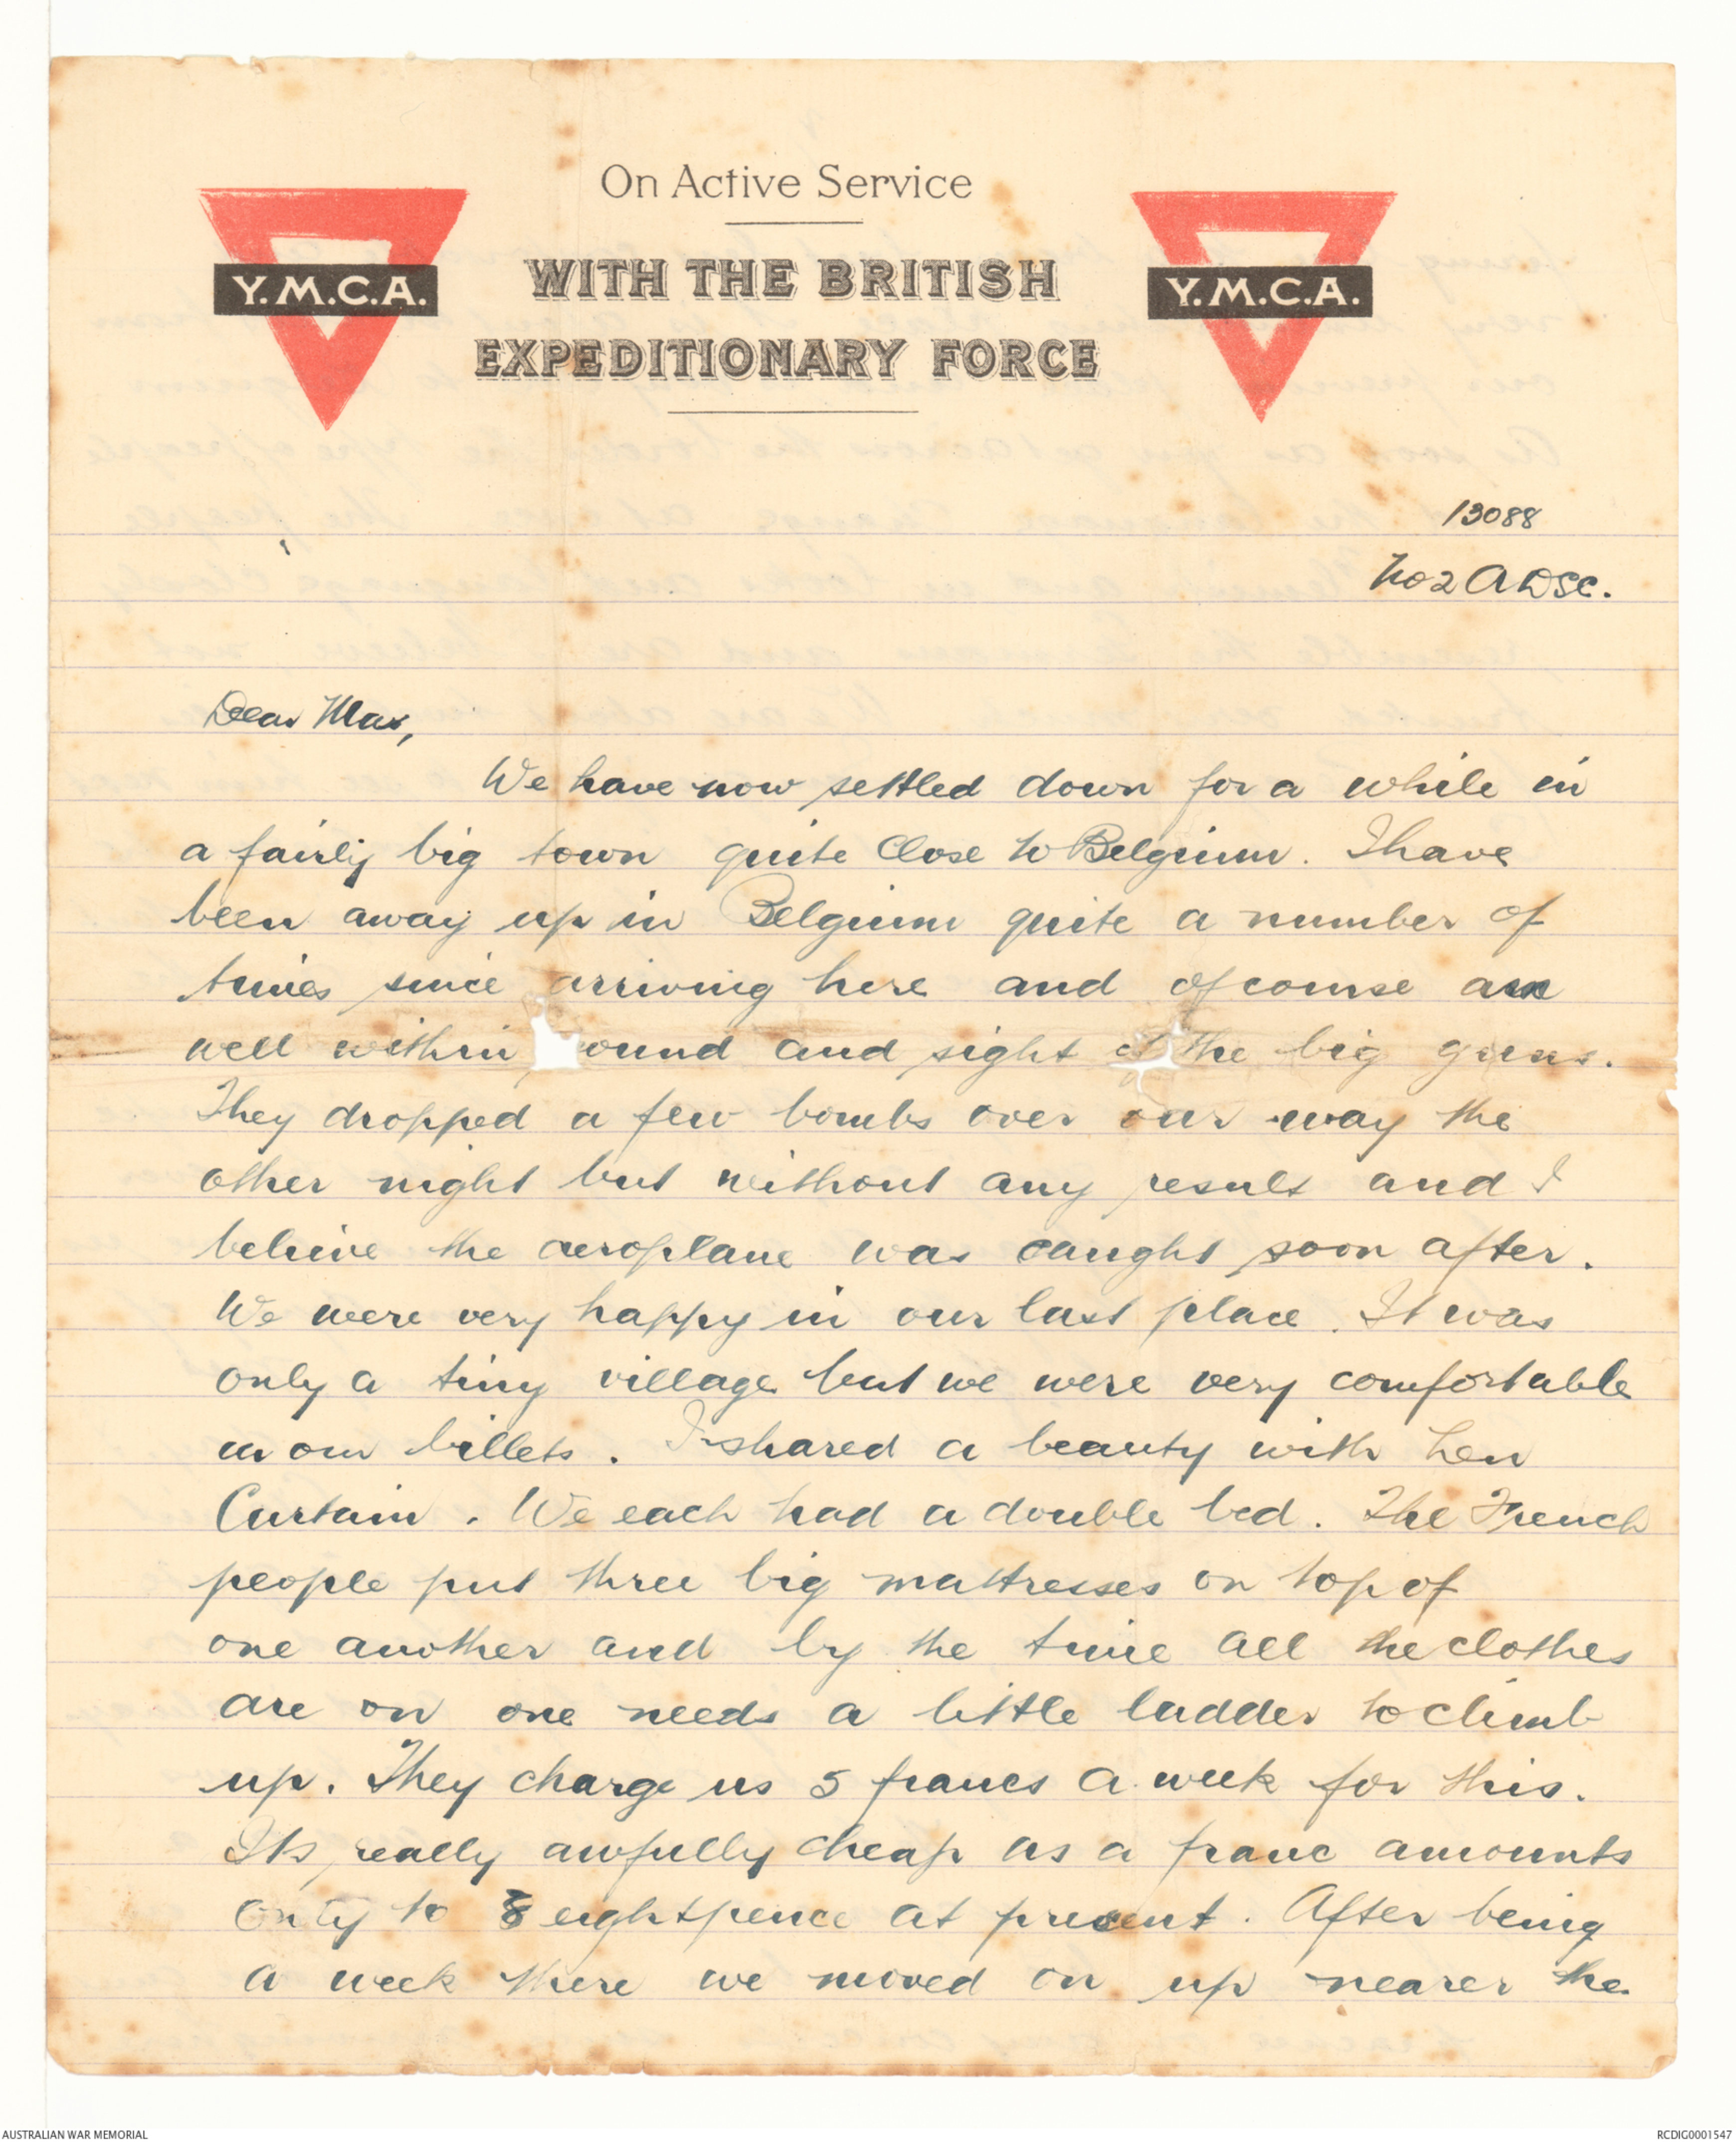 On Active Service
WITH THE BRITISH
EXPEDITIONARY FORCE
Y.M.C.A.
Y.M.C.A.
13088
No 2 ADSC.
Dear Max,
We have now settled down for a while in
a fairly big town quite close to Belgium. I have
been away up in Belgium quite a number of
times since arriving here and of course am
well within ound and sight of the big guns.
They dropped a few bombs over our way the
other night but without any result and I
believe the aeroplane was caught soon after.
We were very happy in our last place. It was
only a tiny village but we were very comfortable
in our billets. I shared a beauty with Len
Curtain. We each had a double bed. The French
people put three big mattresses on top of
one another and by the time all the clothes
are on one needs a little ladder to climb
up. They charge us 5 francs a week for this.
Its really awfully cheap as a franc amounts
only to 8 eightpence at present. After being
a week there we moved on up nearer the
AUSTRALIAN WAR MEMORIAL
RCDIG0001547